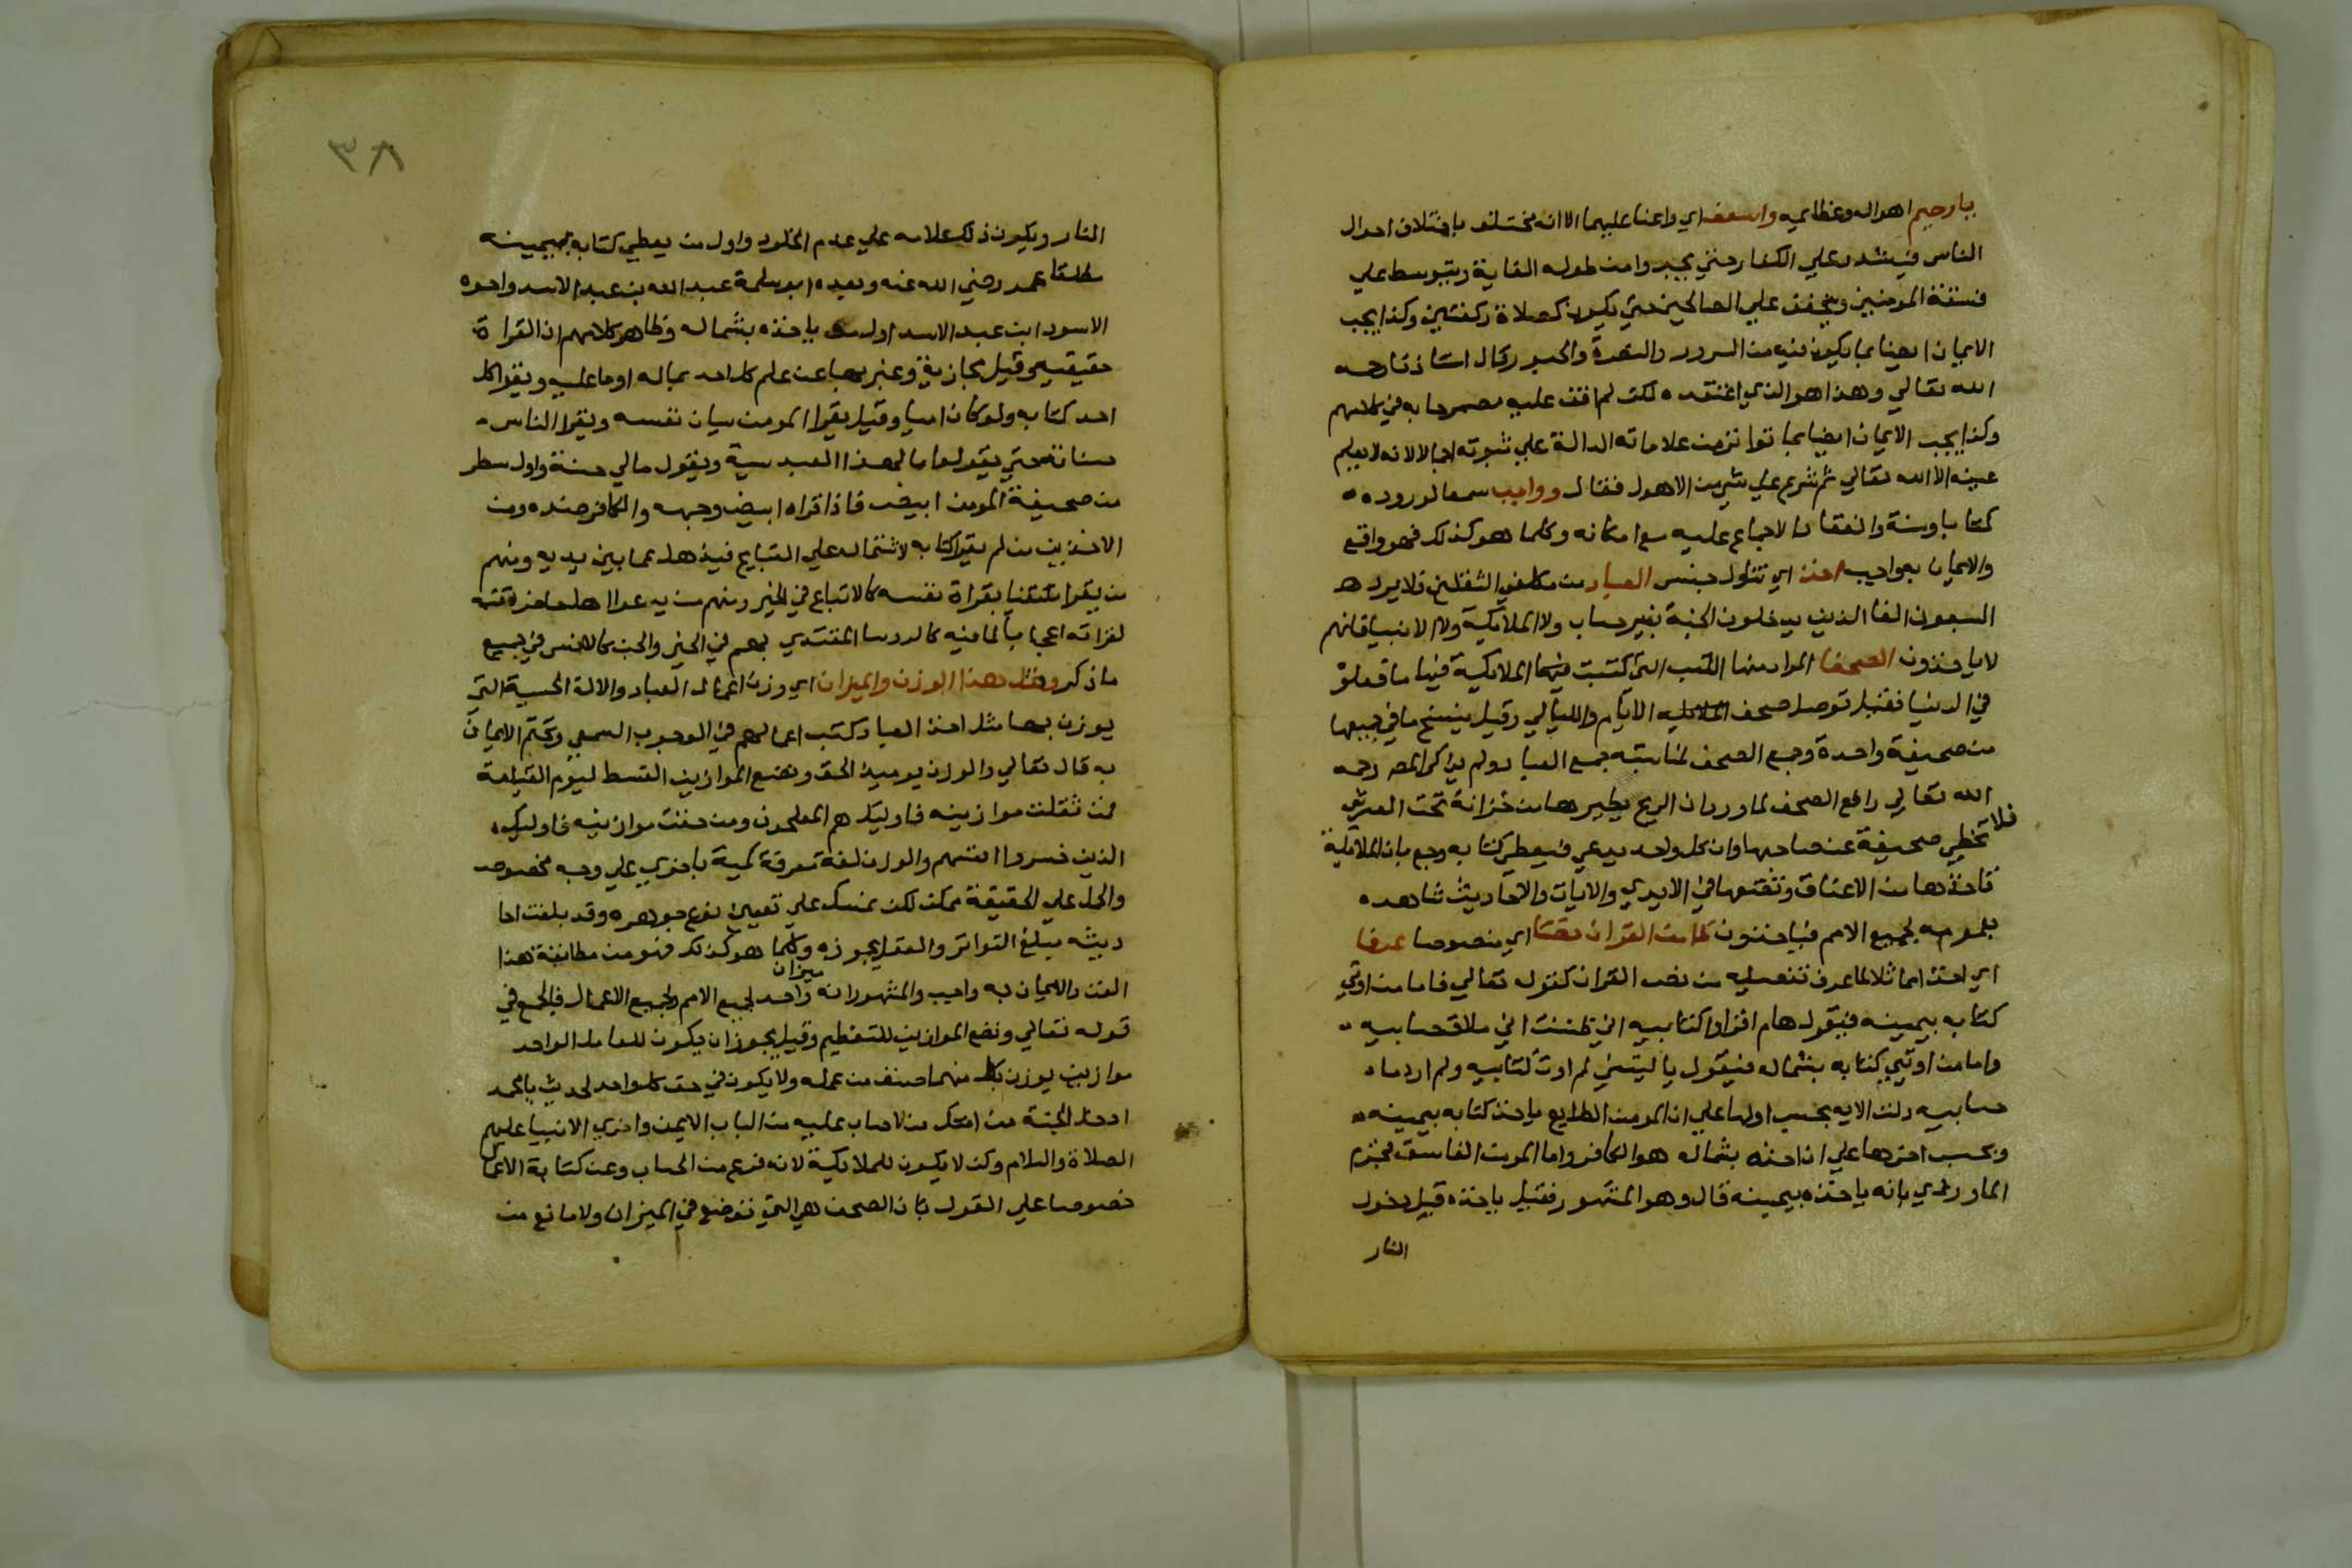 يا رحيم اهواله وعظايمه واسعف اي واعنا عليهما الا انه مختلف باختلاف احوال
الناس فيشدد علي الكفار حتي يجدوا من طوله الغاية ويتوسط علي
فسقة المومنين ويخفف علي الصالحين حتي يكون كصلاة ركعتين وكذا يجب
الايمان ايضا بما يكون فيه من السرور والنضرة والحبور وقال استاذنا رحمه
الله تعالي وهذا هو الذي اعتقده لكن لم اقف عليه مصرحا به في كلامهم
وكذا يجب الايمان ايضا بما تواتر من علاماته الدالة علي ثبوته اجمالا لانه لا يعلم
عينه الا الله تعالي ثم شرع علي شي من الاهول فقال وواجب سمعا لوروده
كتابا وسنة وانعقاد الاجماع عليه مع امكانه وكلما هو كذلك فهو واقع
والايمان به واجب اخذ اي تناول جنس العباد من مكلفي الثقلين فلا يرد
السبعون الفا الذين يدخلون الجنة بغير حساب ولا الملايكة ولا الانبيا فانهم
لا ياخذون الصحفا المراد منها الكتب التي كتبت فيها الملايكة فيها ما فعلوه
في الدنيا فقيل توصل صحف الايام والليالي وقيل ينسخ ما في جميعها
من صحيفة واحدة وجمع الصحف لمناسبته جمع العباد ولم يذكر المص رحمه
الله تعالي رافع الصحف لما ورد ان الريح يطيرها من خزانة تحت العرش
فلا تخطي صحيفة عنق صاحبها وان كل واحد يدعي فيعطي كتابه وجمع بان الملايكة
تاخذها من الاعناق وتضعها في الايدي والايات والاحاديث شاهده
بلزومه لجميع الامم فياخذون كما من القران نصا اي منصوصا عرفا
اي اخذا مماثلا لما عرف تفصيله من نص القران كقوله تعالي فاما من اوتي
كتابه بيمينه فيقول هام اقراوا كتابيه اني ظننت اني ملاق حسابيه
واما من اوتي كتابه بشماله فيقول يا ليتني لم اوت كتابيه ولم ادر ما
حسابيه دلت الايه بحسب اولها علي ان المومن الطايع ياخذ كتابه بيمينه
وبحسب اخرها علي ان اخذه بشماله هو الكافر واما المومن الفاسق فجزم
الماوردي بانه ياخذه بيمينه قال وهو المشهور فقيل ياخذه قبل دخول
النار
٣٨
النار ويكون ذلك علامه علي عدم الخلود واول من يعطي كتابه بيمينه
مطلقا عمر رضي الله عنه وبعده ابو سلمة عبد الله بن عبد الاسد واخوه
الاسود ابن عبد الاسد اول من ياخذه بشماله وظاهر كلامهم ان القراة
حقيقيه وقيل مجازية وعبر بها عن علم كل احد بماله او ما عليه ويقرا كل
احد كتابه ولو كان اميا وقيل يقرا المومن سيات نفسه ويقرا الناس
حسناته حتي يقولوا ما لهذا العبد سية ويقول مالي حسنة واول سطر
من صحيفة المومن ابيض فاذا قراه ابيض وجهه والكافر ضده ومن
الاخرين من لم يقرا كتابه لاشتماله علي القبايح فيذهل عما بين يديه ومنهم
من يقرا مكتفيا بقراة نفسه كالاتباع في الخير ومنهم من يدعوا اهل حاضرته
لقراته اعجابا بما فيه كالروسا المقتدي بهم في الخير والجن كالانس في جميع
ما ذكر ومثل هذا الوزن والميزان اي وزن اعمال العباد والالة الحسية التي
يوزن بها مثل اخذ العباد كتب اعمالهم في الوجوب السمعي وتحتم الايمان
به قال تعالي والوزن يوميذ الحق ونضع الموازين القسط ليوم القيامة
فمن ثقلت موازينه فاوليك هم المفلحون ومن خفت موازينه فاوليك
الذين خسروا انفسهم والوزن لغة معرفة كمية باخري علي وجه مخصوص
والحمل علي الحقيقة ممكن لكن نمسك علي تعيين نوع جوهره وقد بلغت احا
ديثه مبلغ التواتر والعقل يجوزه وكلما هو كذلك فهو من مطابقة هذا
الفن والايمان به واجب والمشهور انه ميزان واحد لجميع الامم ولجميع الاعمال فالجمع في
قوله تعالي ونضع الموازين للتعظيم وقيل يجوز ان يكون للعامل الواحد
موازين يوزن بكل منهما صنف من عمله ولا يكون في حق كل واحد لحديث يا محمد
ادخل الجنة من امتك من لا حساب عليه من الباب الايمن واحري الانبيا عليهم
الصلاة والسلام وكذ لا يكون للملايكة لانه فرع من الحساب وعن كتابة الاعمال
خصوصا علي القول بان الصحف هي التي توضع في الميزان ولا مانع من